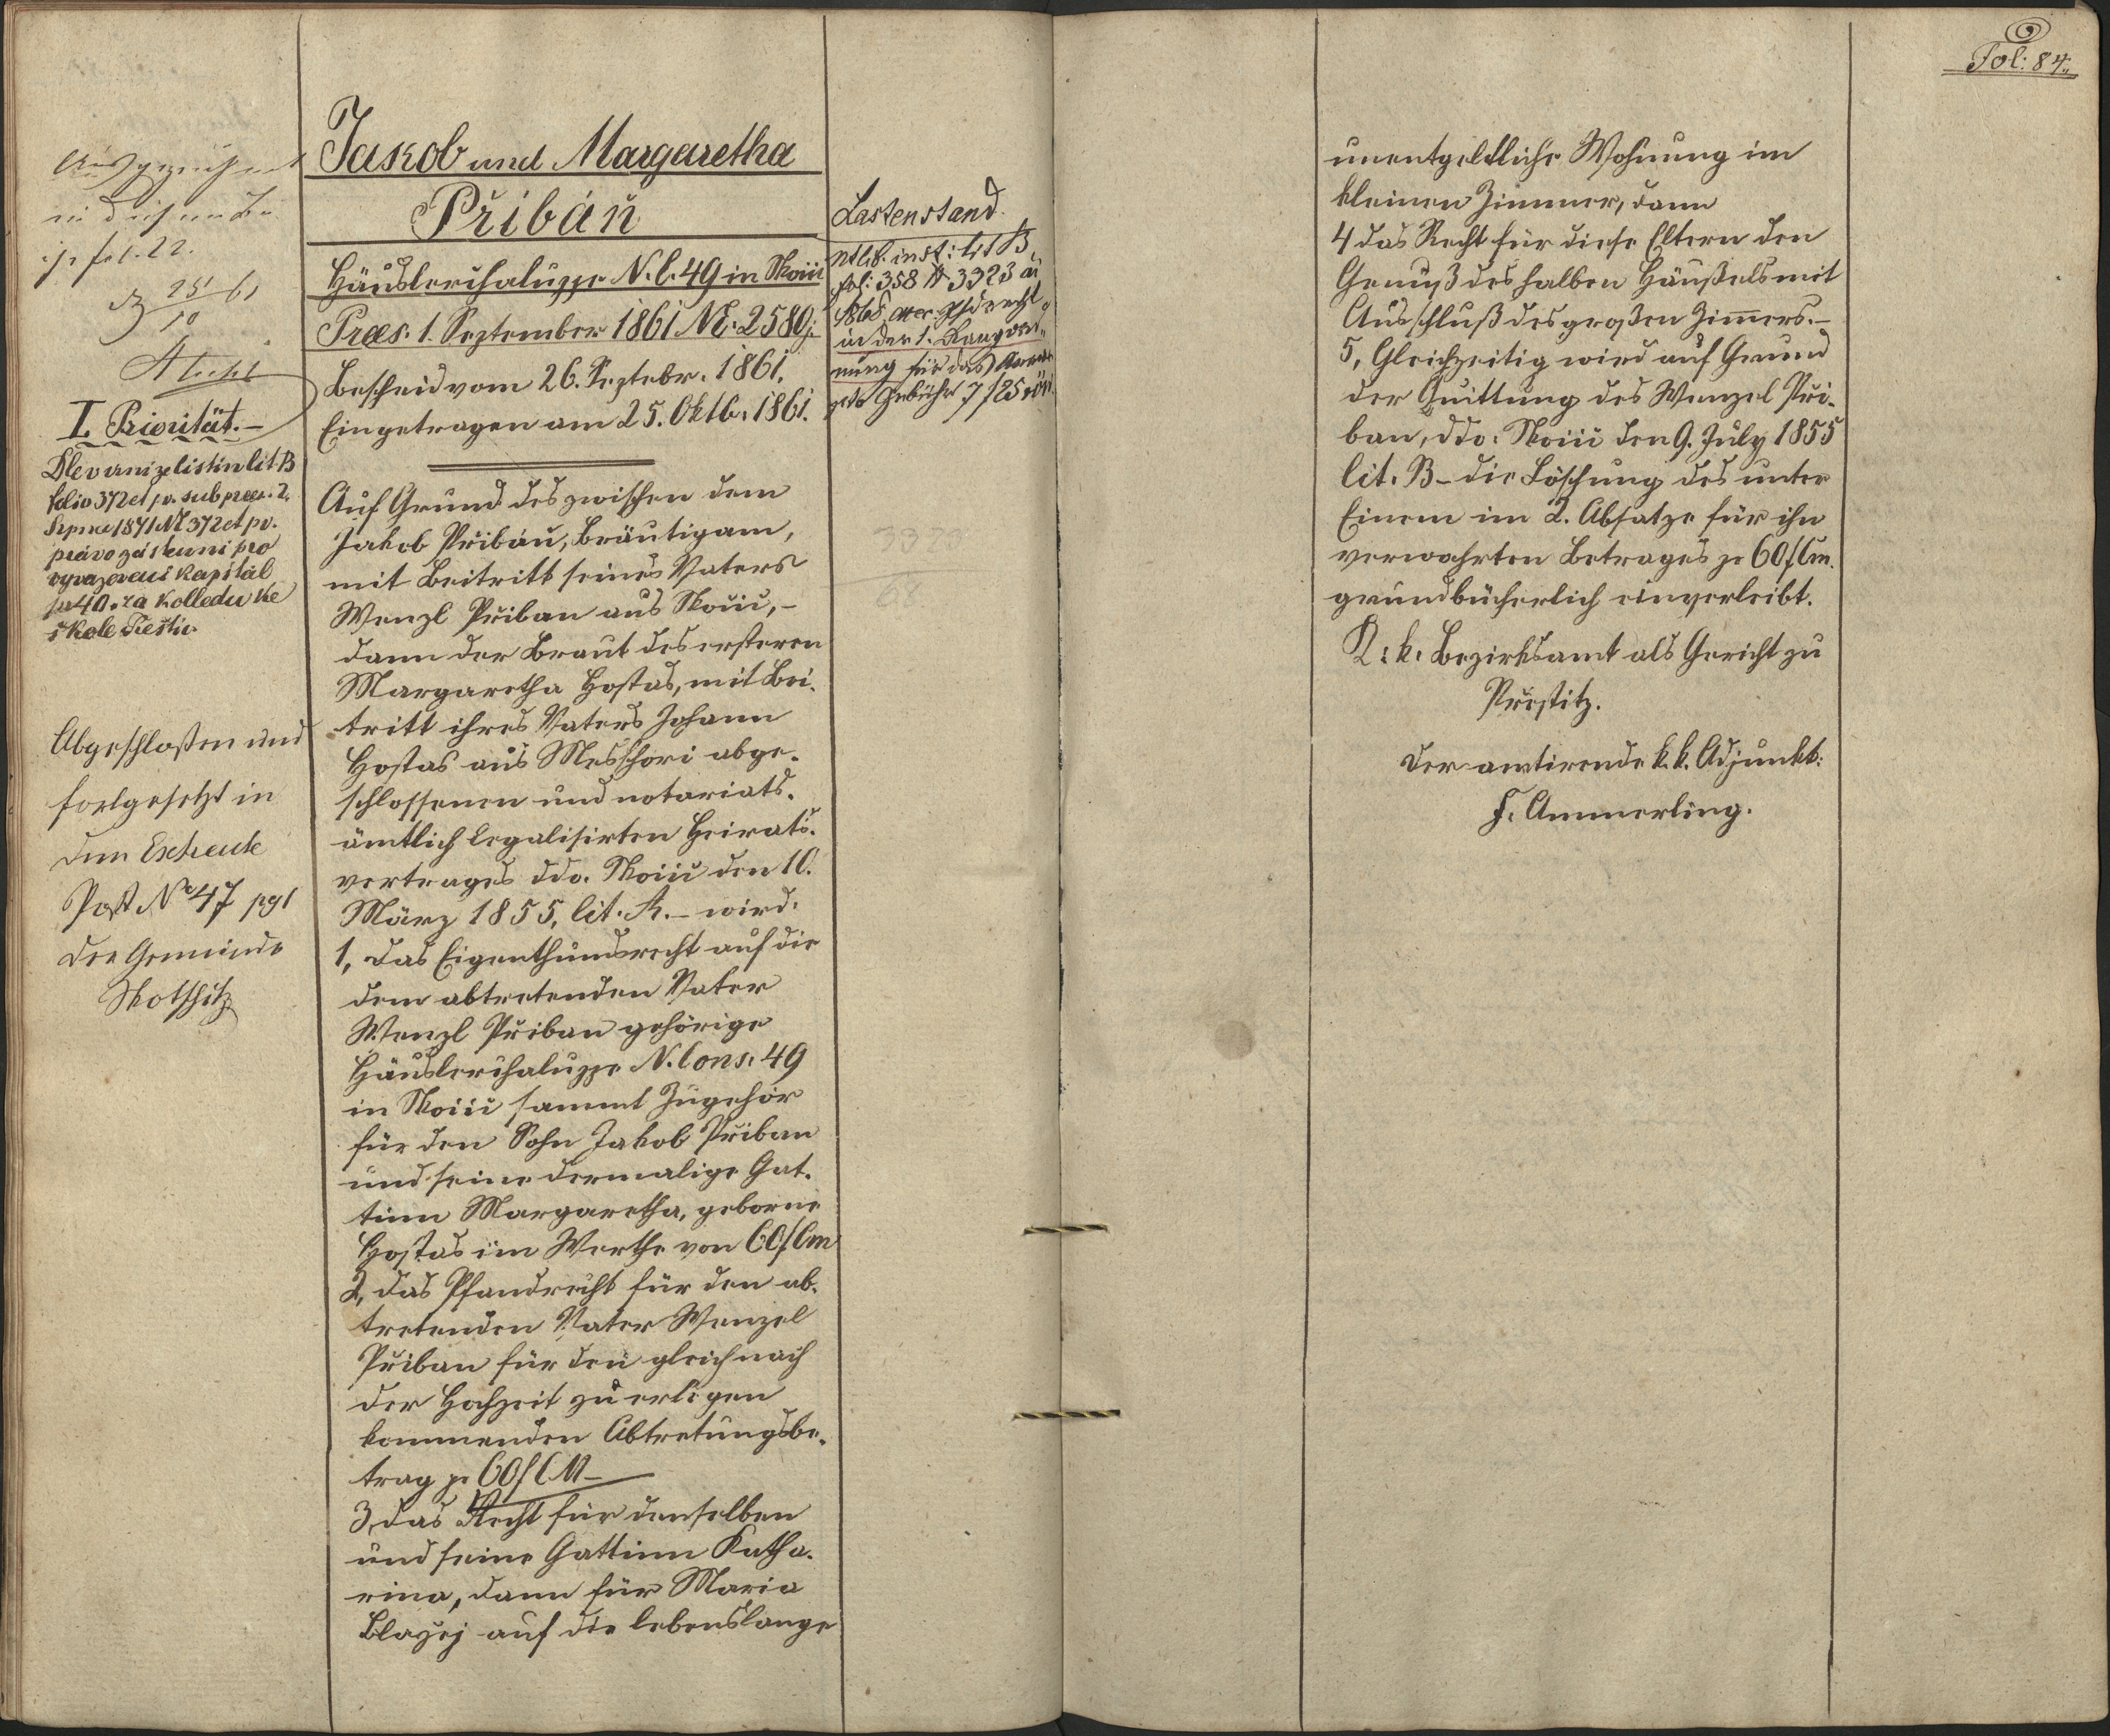 Fol: 84.
Ausgezeichnet
fol. 22.
25/10 61
I. Priorität.-
Dle vernize listin lit B
folio 372 et pv. sub praes. 2.
Srpna 1871 NE 372 et pv.
právo zástavní pro
vyvazovací kapitál
pr 40. za kolledu ke
škole
Abgeschloßen und
fortgesetzt in
dem Extracte
Post No 47 pg 1
der Gemeinde
Skotschitz
Jakob und Margaretha
Přibáň
Häuslerchaluppe N. C. 49 in
Praes. 1. September 1861 NE: 2580 j
Bescheid vom 26. Septebr. 1861.
Eingetragen am 25. Oktb. 1861.
Auf Grund des zwischen dem
Jakob Přibáň, Bräutigam,
mit Beitritt seines Vaters
Wenzl Přiban aus
dann der Braut des ersteren
Margaretha Hostas, mit Bei-
tritt ihres Vaters Johann
Hostas aus Messhori abge-
schlossenen und notariats-
ämtlich legalisirten Heirats-
vertrages ddo. den 10.
März 1855, lit. A. - wird:
1, das Eigenthumsrecht auf die
dem abtretenden Vater
Wenzl Přiban gehörige
Häuslerchaluppe N. Cons. 49
in sammt Zugehör
für den Sohn Jakob Přiban
und seine dermalige Gat-
tinn Margaretha, geborne
Hostas im Werthe von 60 f Cm
2, das Pfandrecht für den ab-
tretenden Vater Wenzel
Přiban für den gleich nach
der Hochzeit zu erlegen
kommenden Abtretungsbe-
trag pr 60 f CM -
3, das Recht für denselben
und seine Gattinn Katha-
rina, dann für Maria
Blazej auf die lebenslange
Lastenstand.
Ntlib. inst: lit B
fol: 358 N 3323 ai
1868 Pfdrecht
in der 1. Rangord-
nung für das
Gebühr 7 f 25
3323
68
unentgeldliche Wohnung im
kleinen Zimmer, dann
4 das Recht für diese Eltern den
Genuß des halben Häußels mit
Ausschluß des großen Zimers.-
5, Gleichzeitig wird auf Grund
der Quittung des Wenzel Při-
ban, ddo. den 9. July 1855
lit. B - die Löschung des unter
Einem im 2. Absatze für ihn
verwahrten Betrages pr 60 f Cm.
grundbücherlich einverleibt.
K. k. Bezirksamt als Gericht zu
Přestitz.
Der amtirende k. k. Adjunkt:
F. Ammerling.